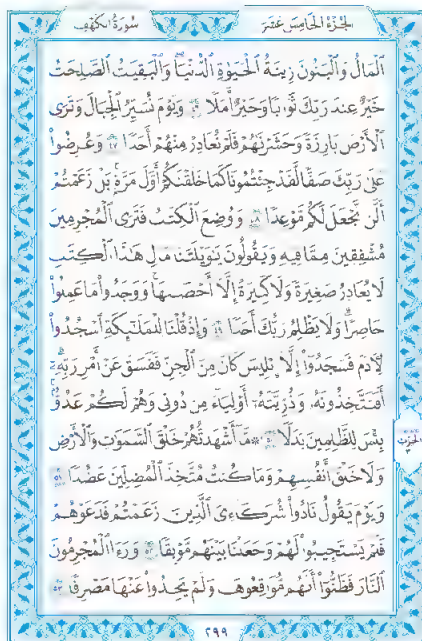 الجزء الخامس عشر
سورة الكهف
الْمَالُ وَالْبَنُونَ زِينَةُ الْحَيَوٰةِ الدُّنْيَا وَالْبَٰقِيَٰتُ الصَّٰلِحَٰتُ
خَيْرٌ عِندَ رَبِّكَ ثَوَابًا وَخَيْرٌ أَمَلًا ٤٦ وَيَوْمَ نُسَيِّرُ الْجِبَالَ وَتَرَى
الْأَرْضَ بَارِزَةً وَحَشَرْنَٰهُمْ فَلَمْ نُغَادِرْ مِنْهُمْ أَحَدًا ٤٧ وَعُرِضُوا۟
عَلَىٰ رَبِّكَ صَفًّا لَّقَدْ جِئْتُمُونَا كَمَا خَلَقْنَٰكُمْ أَوَّلَ مَرَّةٍۭ بَلْ زَعَمْتُمْ
أَلَّن نَّجْعَلَ لَكُم مَّوْعِدًا ٤٨ وَوُضِعَ الْكِتَٰبُ فَتَرَى الْمُجْرِمِينَ
مُشْفِقِينَ مِمَّا فِيهِ وَيَقُولُونَ يَٰوَيْلَتَنَا مَالِ هَٰذَا الْكِتَٰبِ
لَا يُغَادِرُ صَغِيرَةً وَلَا كَبِيرَةً إِلَّا أَحْصَىٰهَا وَوَجَدُوا۟ مَا عَمِلُوا۟
حَاضِرًا وَلَا يَظْلِمُ رَبُّكَ أَحَدًا ٤٩ وَإِذْ قُلْنَا لِلْمَلَٰٓئِكَةِ اسْجُدُوا۟
لِءَادَمَ فَسَجَدُوٓا۟ إِلَّآ إِبْلِيسَ كَانَ مِنَ الْجِنِّ فَفَسَقَ عَنْ أَمْرِ رَبِّهِۦٓ
أَفَتَتَّخِذُونَهُۥ وَذُرِّيَّتَهُۥٓ أَوْلِيَآءَ مِن دُونِى وَهُمْ لَكُمْ عَدُوٌّۢ
بِئْسَ لِلظَّٰلِمِينَ بَدَلًا ٥٠ ۞ مَّآ أَشْهَدتُّهُمْ خَلْقَ السَّمَٰوَٰتِ وَالْأَرْضِ
وَلَا خَلْقَ أَنفُسِهِمْ وَمَا كُنتُ مُتَّخِذَ الْمُضِلِّينَ عَضُدًا ٥١
وَيَوْمَ يَقُولُ نَادُوا۟ شُرَكَآءِىَ الَّذِينَ زَعَمْتُمْ فَدَعَوْهُمْ
فَلَمْ يَسْتَجِيبُوا۟ لَهُمْ وَجَعَلْنَا بَيْنَهُم مَّوْبِقًا ٥٢ وَرَءَا الْمُجْرِمُونَ
النَّارَ فَظَنُّوٓا۟ أَنَّهُم مُّوَاقِعُوهَا وَلَمْ يَجِدُوا۟ عَنْهَا مَصْرِفًا ٥٣
٢٩٩